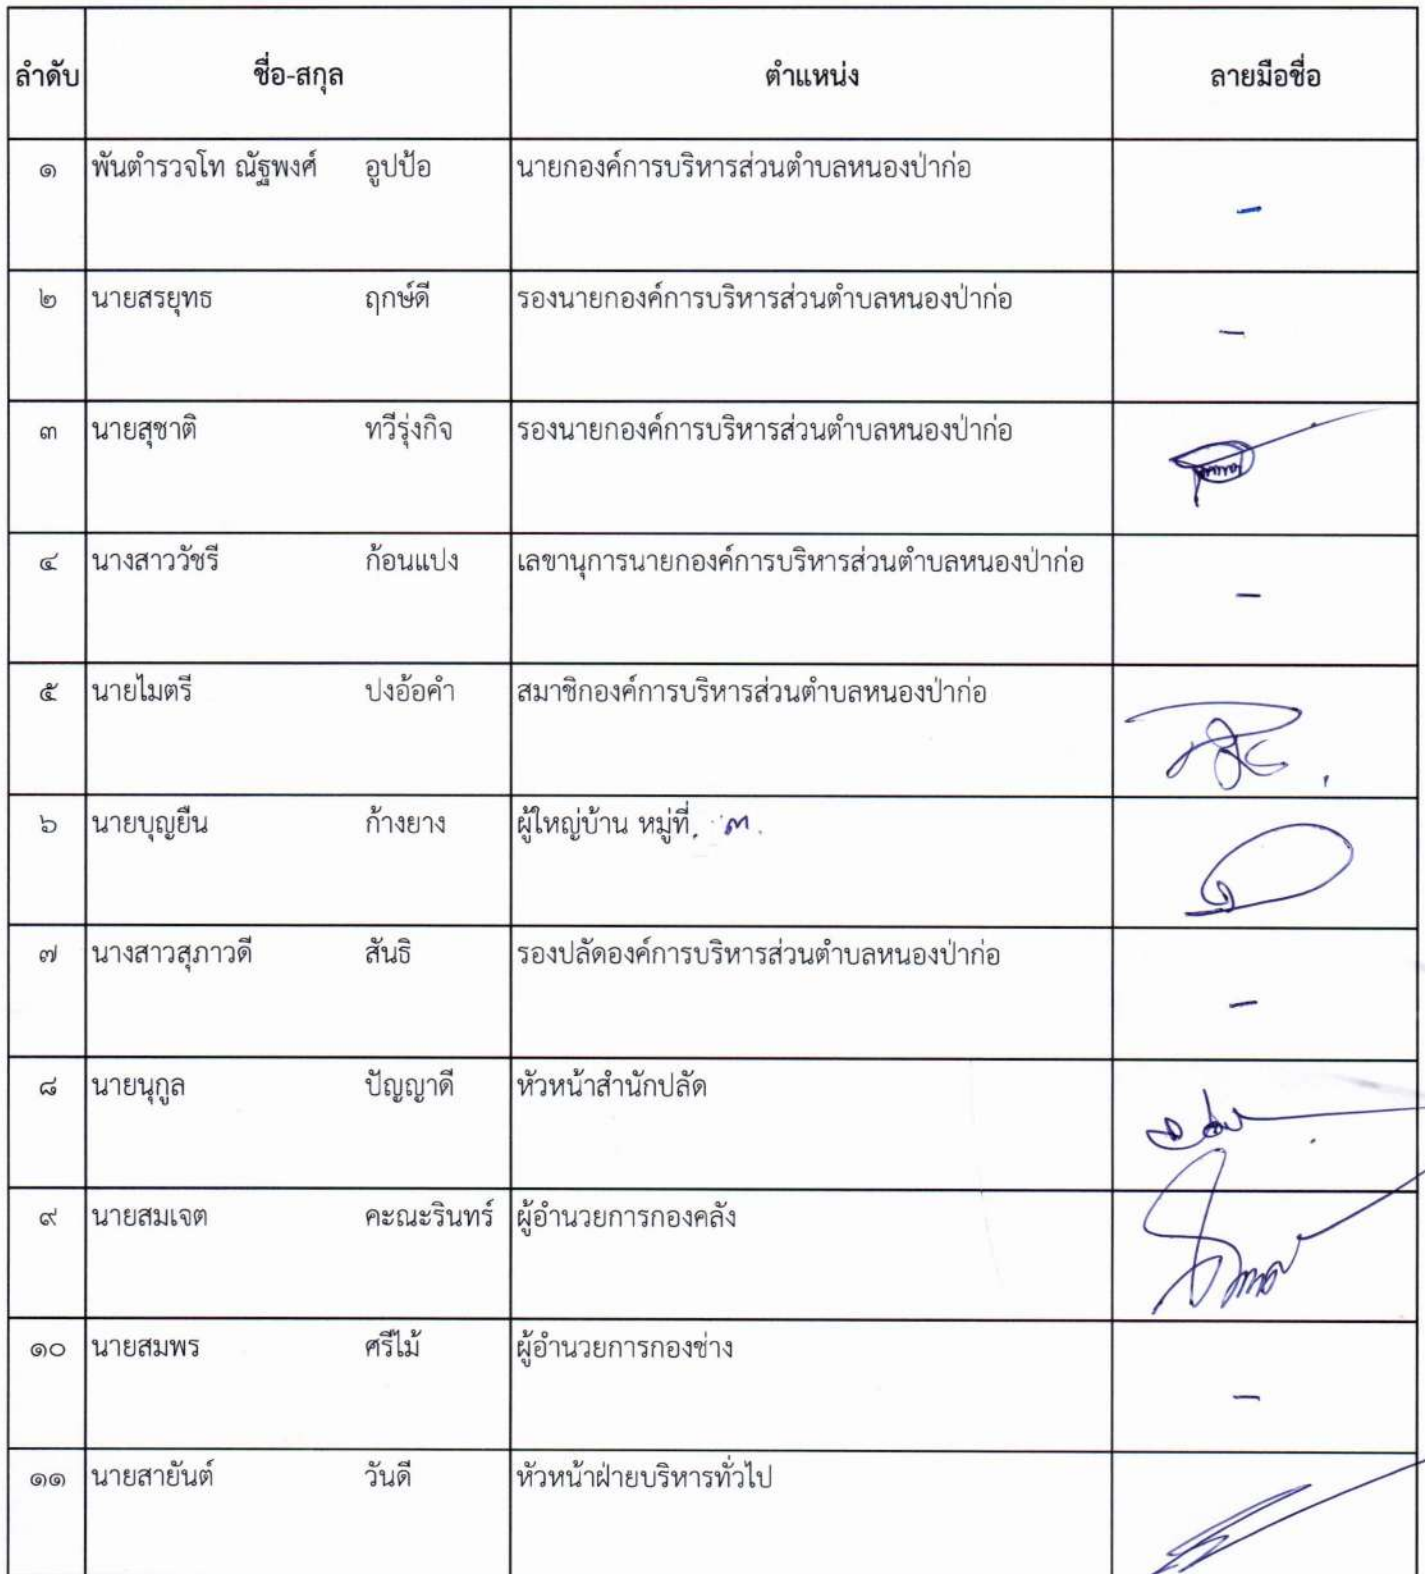 ลำดับ ชื่อ-สกุล ตำแหน่ง ลายมือชื่อ
๑ พันตำรวจโท ณัฐพงศ์ อูปป้อ นายกองค์การบริหารส่วนตำบลหนองป่าก่อ -
๒ นายสรยุทธ ฤกษ์ดี รองนายกองค์การบริหารส่วนตำบลหนองป่าก่อ -
๓ นายสุชาติ ทวีรุ่งกิจ รองนายกองค์การบริหารส่วนตำบลหนองป่าก่อ
๔ นางสาววัชรี ก้อนแปง เลขานุการนายกองค์การบริหารส่วนตำบลหนองป่าก่อ -
๕ นายไมตรี ปงอ้อคำ สมาชิกองค์การบริหารส่วนตำบลหนองป่าก่อ
๖ นายบุญยืน ก้างยาง ผู้ใหญ่บ้าน หมู่ที่ ๓
๗ นางสาวสุภาวดี สันธิ รองปลัดองค์การบริหารส่วนตำบลหนองป่าก่อ -
๘ นายนุกูล ปัญญาดี หัวหน้าสำนักปลัด
๙ นายสมเจต คะณะรินทร์ ผู้อำนวยการกองคลัง
๑๐ นายสมพร ศรีไม้ ผู้อำนวยการกองช่าง -
๑๑ นายสายันต์ วันดี หัวหน้าฝ่ายบริหารทั่วไป